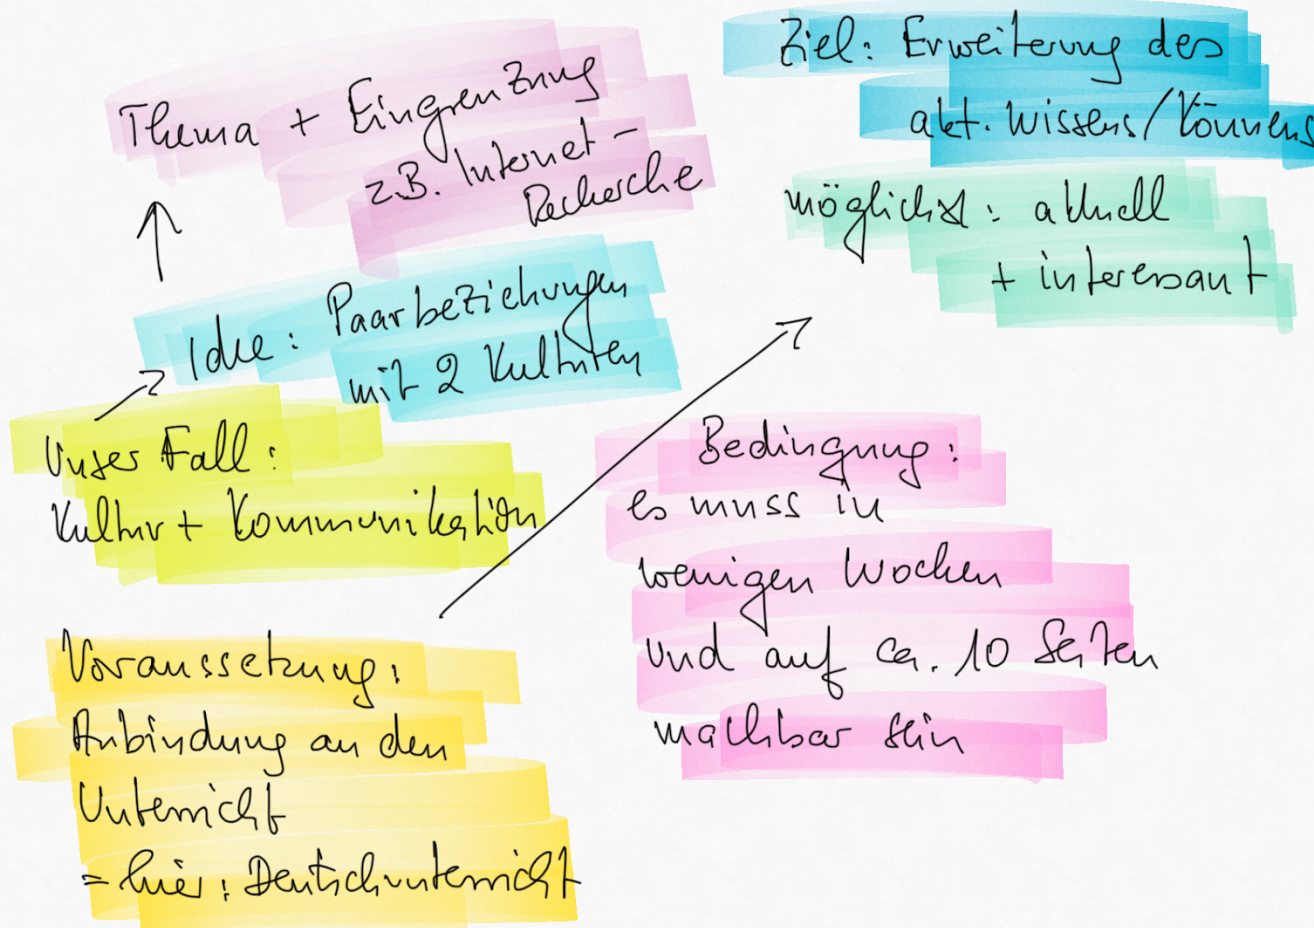 Thema + Eingrenzung
z.B. Internet-
Recherche
Idee: Paarbeziehungen
mit 2 Kulturen
Unser Fall:
Kultur + Kommunikation
Voraussetzung:
Anbindung an den
Unterricht
= hier: Deutschunterricht
Ziel: Erweiterung des
akt. Wissens/Könnens
möglichst: aktuell
+ interessant
Bedingung:
es muss in
wenigen Wochen
und auf ca. 10 Seiten
machbar sein